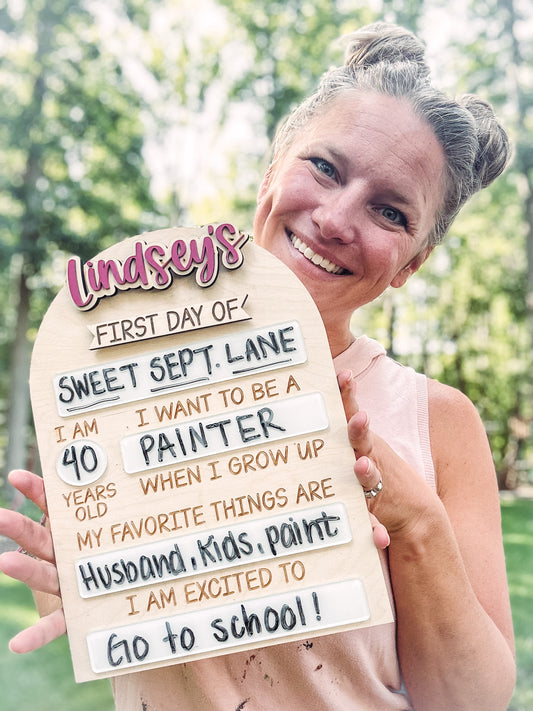 Lindsey's
FIRST DAY OF
SWEET SEPT. LANE
I AM
I WANT TO BE A
40
PAINTER
YEARS
OLD
WHEN I GROW UP
MY FAVORITE THINGS ARE
Husband, Kids, paint
I AM EXCITED TO
Go to school!